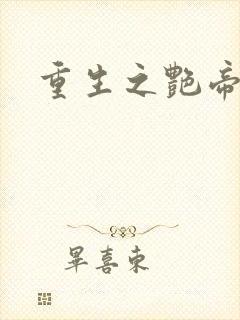 重生之艷帝
畢喜東